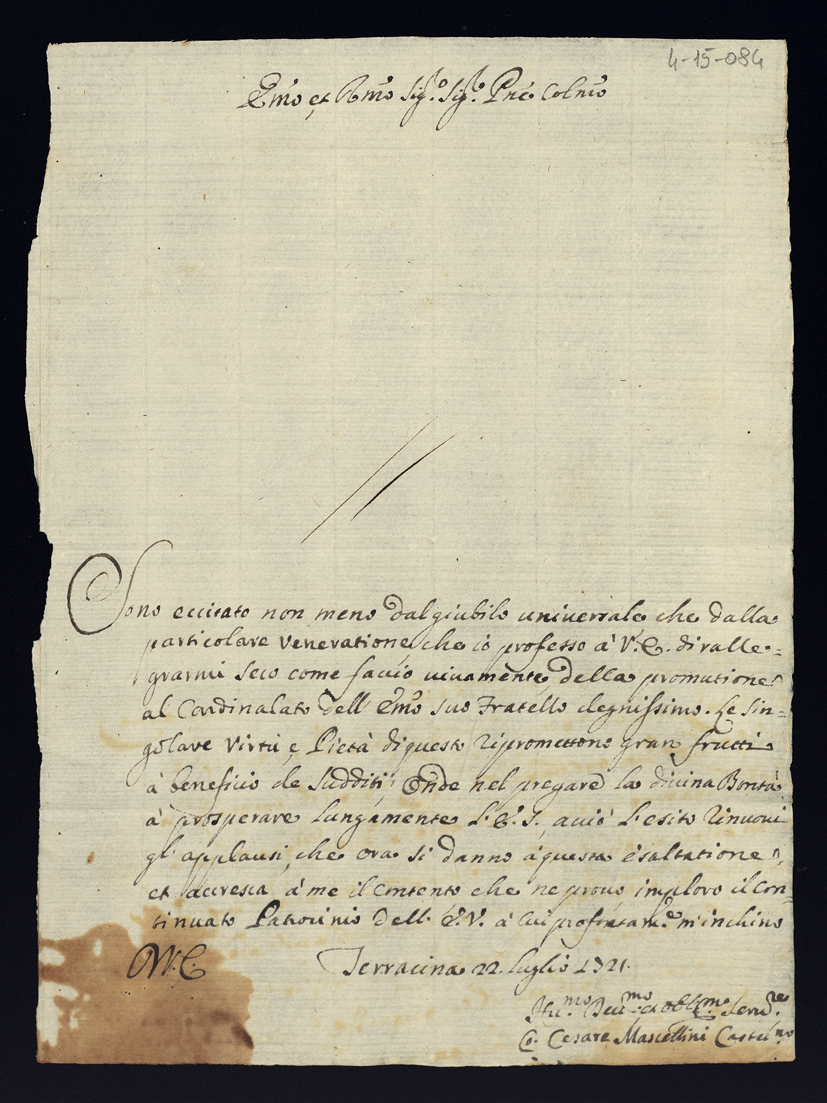 4-15-084
Em̃o et Rm̃o Sig.r Sig.r Pñe Colm̃o
Sono eccitato non meno dal giubilo universale che dalla
particolare veneratione che io professo à V. E. di ralle=
grarmi seco come faccio vivamente della promotione
al Cardinalato dell' Em̃o suo Fratello degnissimo. Le sin=
golare virtù, e Pietà di questo ripromettono gran frutti
à beneficio de sudditi; Onde nel pregare la divina Bontà
à prosperare lungamente l'E. S., acciò l'esito rinuovi
gl' applausi, che ora si danno à questa esaltatione,
et accresca à me il contento che ne provo, imploro il con=
tinuato Patrocinio dell' E. V. à cui profontam.e m'inchino
V. E. Terracina 22. Luglio 1721.
Hu.mo Dev.mo et obl.mo Serv.re
Co. Cesare Mascellini Castel.no